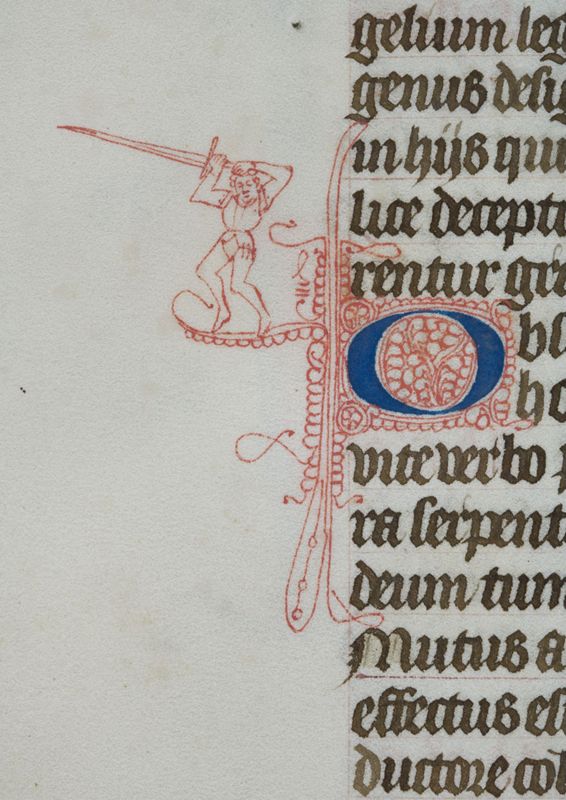 gelium leg
genus desig
in hijs qui
lice decept
rentur gre
Obs
ho
vite verbo p
ra serpent
deum tum
Mutus a
effectus es
ductore col